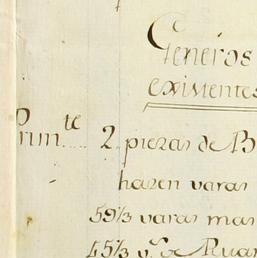 Generos
existentes
Prim.te 2 piezas de B
hazen varas
59 1/3 varas mas
45 1/3 v.s de Ruan